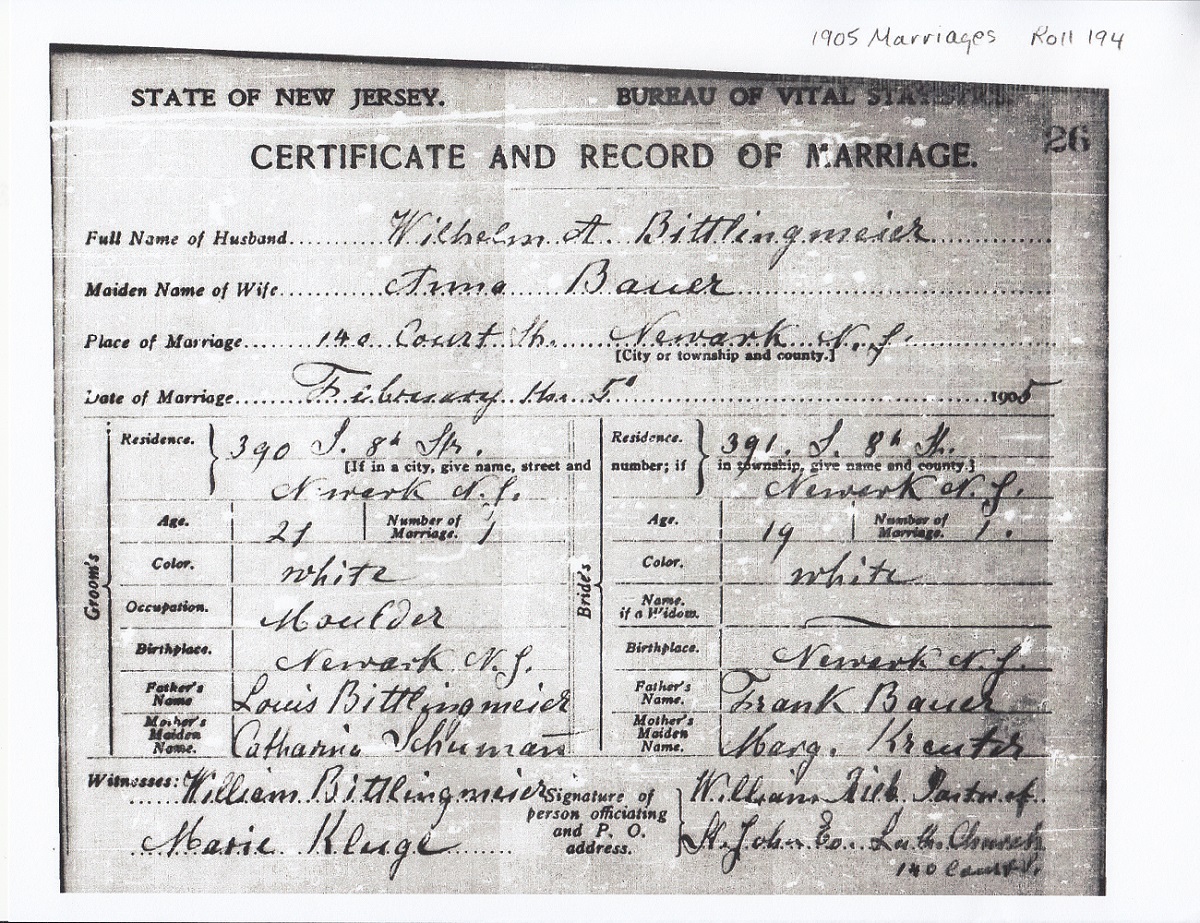 1905 Marriages Roll 194
STATE OF NEW JERSEY. BUREAU OF VITAL STATISTICS.
26
CERTIFICATE AND RECORD OF MARRIAGE.
Full Name of Husband Wilhelm A. Bittlingmeier
Maiden Name of Wife Anna Bauer
Place of Marriage 140 Court St. Newark N. J.
[City or township and county.]
Date of Marriage February the 5 1905
Groom's
Residence. 390 S. 8th Str.
[If in a city, give name, street and
Newark N. J.
Age. 21 Number of Marriage. 1
Color. white
Occupation. Moulder
Birthplace. Newark N. J.
Father's Name Louis Bittlingmeier
Mother's Maiden Name. Catharina Schuman
Bride's
Residence. 391. S. 8th St.
number; if in township, give name and county.]
Newark N. J.
Age. 19 Number of Marriage. 1.
Color. white
Name. if a Widow.
Birthplace. Newark N. J.
Father's Name. Frank Bauer
Mother's Maiden Name. Marg.
Witnesses: William Bittlingmeier
Marie Kluge
Signature of person officiating and P. O. address.
William Pastor of
St. John Ev. Luth. Church
140 Court St.